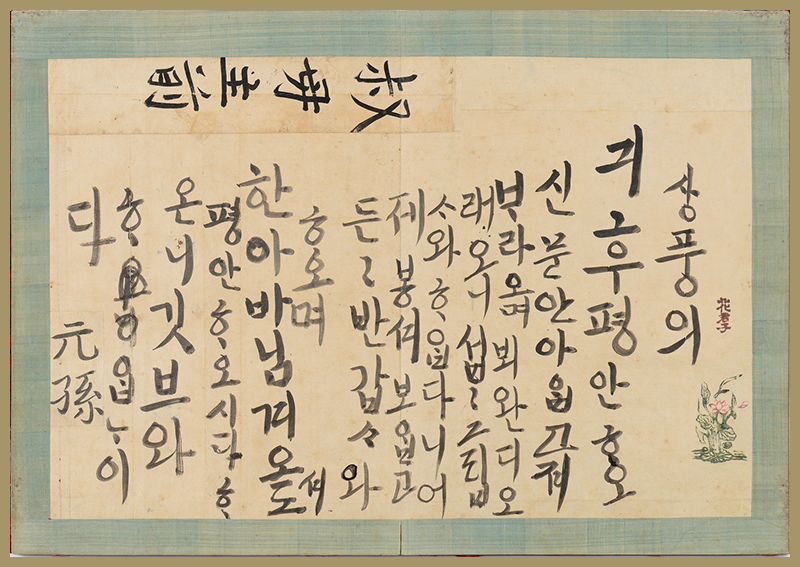 叔母主前
상풍의
긔후평안ᄒᆞ오
신 문안 아ᄋᆞᆸ고져
ᄇᆞ라오며 뵈완디 오
래오니 섭〻 그립
ᄉᆞ와 ᄒᆞᄋᆞᆸ다니 어
제 봉셔 보ᄋᆞᆸ고
든〻 반갑ᄉᆞ와
ᄒᆞ오며
한아바님 겨오셔도
평안ᄒᆞ오시다 ᄒᆞ
온니 깃브와
ᄒᆞᄋᆞᆸᄂᆞ이
다
元孫
花君子